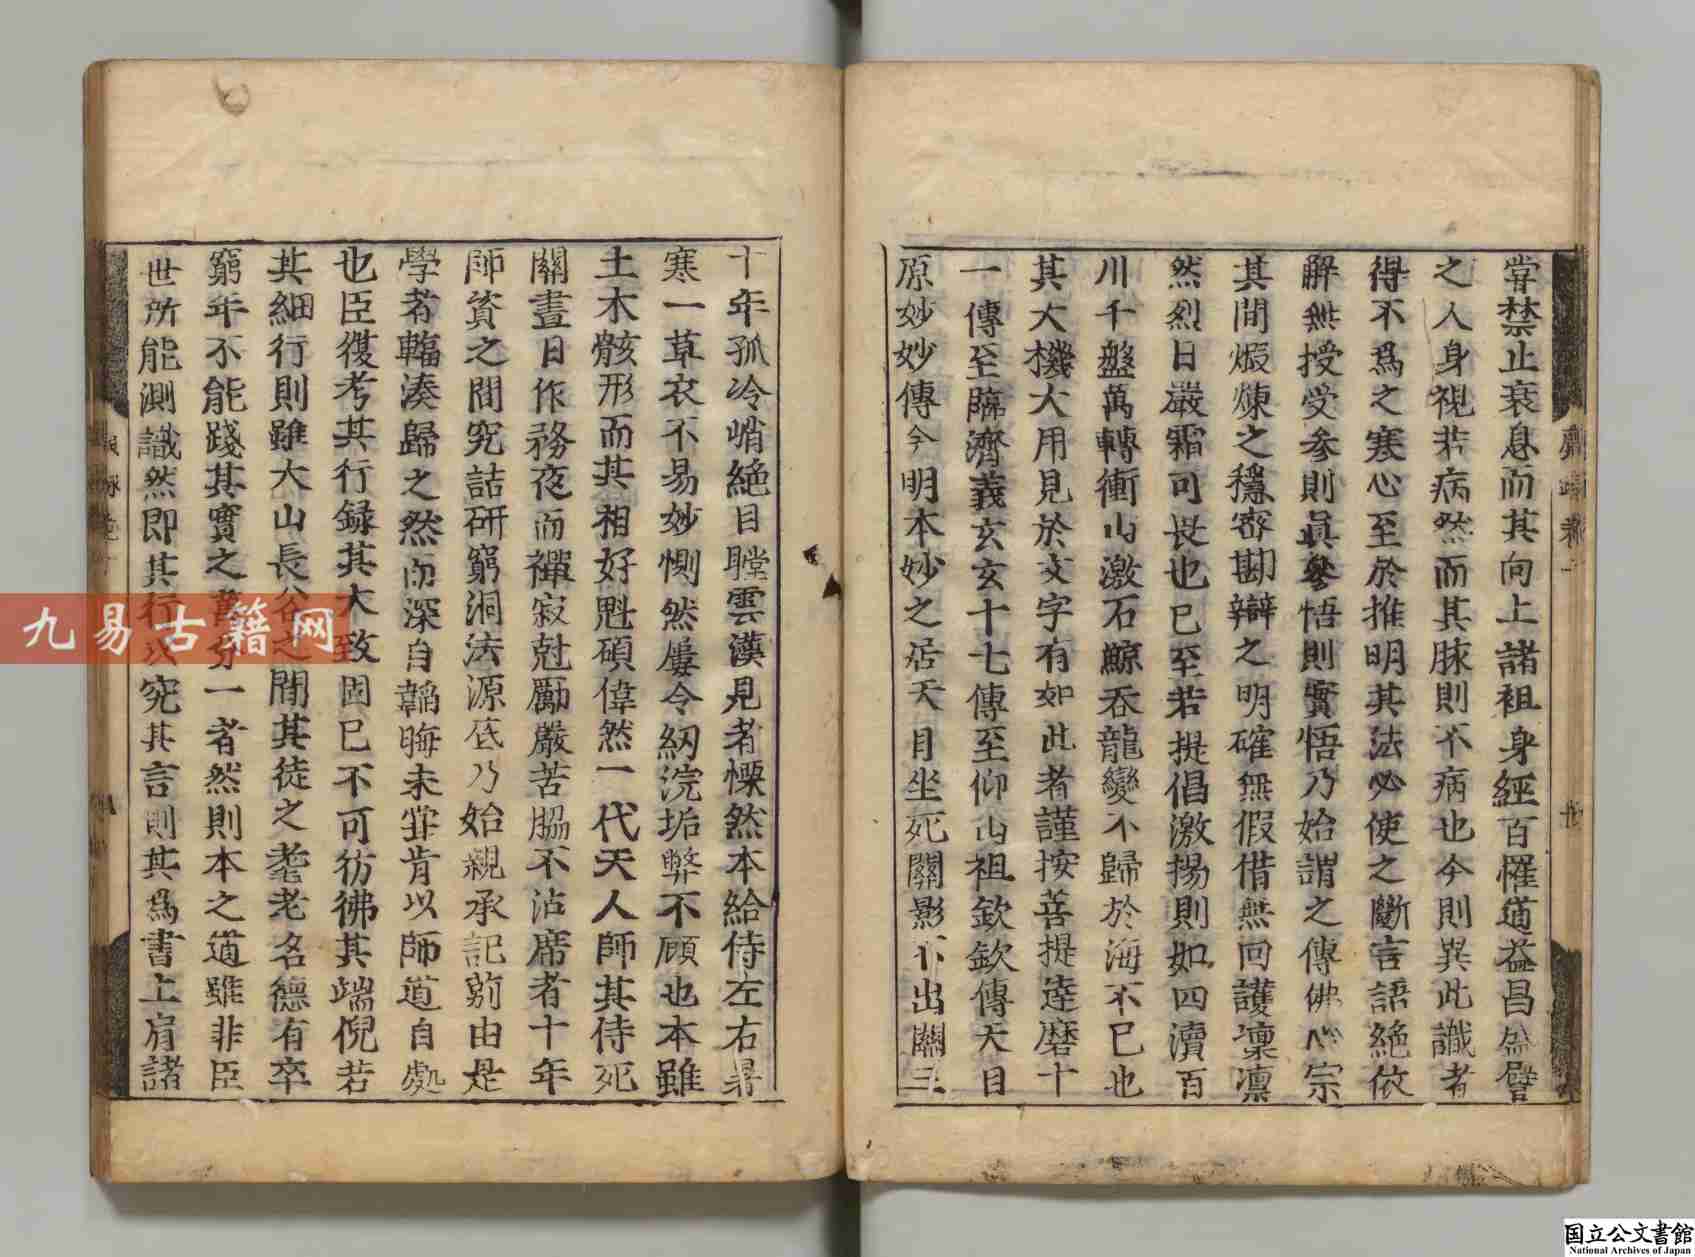 甞禁止衰息而其向上諸祖身經百罹道益昌盛譬
之人身視若病然而其脉則不病也今則異此識者
得不爲之寒心至於推明其法必使之斷言語絶依
解無授受参則眞參悟則實悟乃始謂之傳佛心宗
其間煅煉之穩密勘辯之明確無假借無回護凜凜
然烈日嚴霜可畏也已至若提倡激揚則如四瀆百
川千盤萬轉衝山激石鯨吞龍變不歸於海不已也
其大機大用見於文字有如此者謹按菩提達磨十
一傳至臨濟義玄玄十七傳至仰山祖欽欽傳天目
原妙妙傳今明本妙之居天目坐死關影不出關三
齋 卷
十年孤冷峭絶目瞠雲漢見者慄然本給侍左右暑
寒一草衣不易妙惻然屢令紉浣垢弊不顧也本雖
土木骸形而其相好魁碩偉然一代天人師其侍死
關晝日作務夜而禪寂尅勵嚴苦脇不沾席者十年
師資之間究詰研窮洞法源底乃始親承記莂由是
學者輻湊歸之然而深自韜晦未甞肯以師道自處
也臣復考其行録其大致固已不可彷彿其端倪若
其細行則雖大山長谷之間其徒之耄老名德有卒
窮年不能踐其實之萬分一者然則本之道雖非臣
世所能測識然即其行以究其言則其爲書上肩諸
九易古籍网
国立公文書館
National Archives of Japan